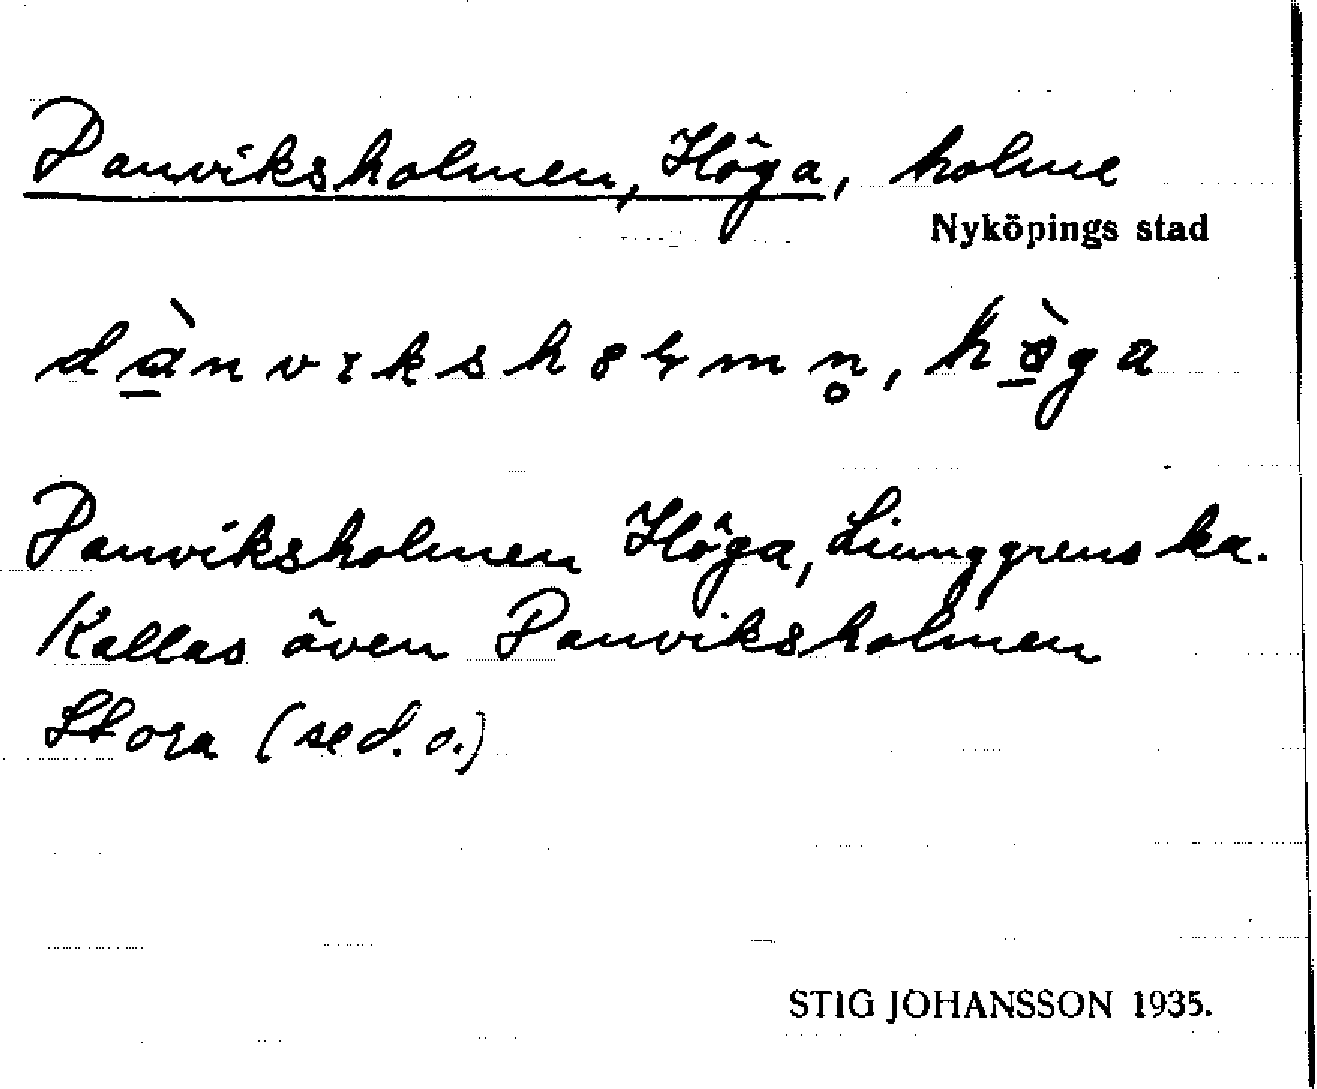 Danviksholmen, Höga, holme
Nyköpings stad
dà̱nvɪksh8ɫmn̥, hö̱̀ga
Danviksholmen Höga, Liunggrenska.
Kallas även Danviksholmen
Stora (se d. o.)
STIG JOHANSSON 1935.